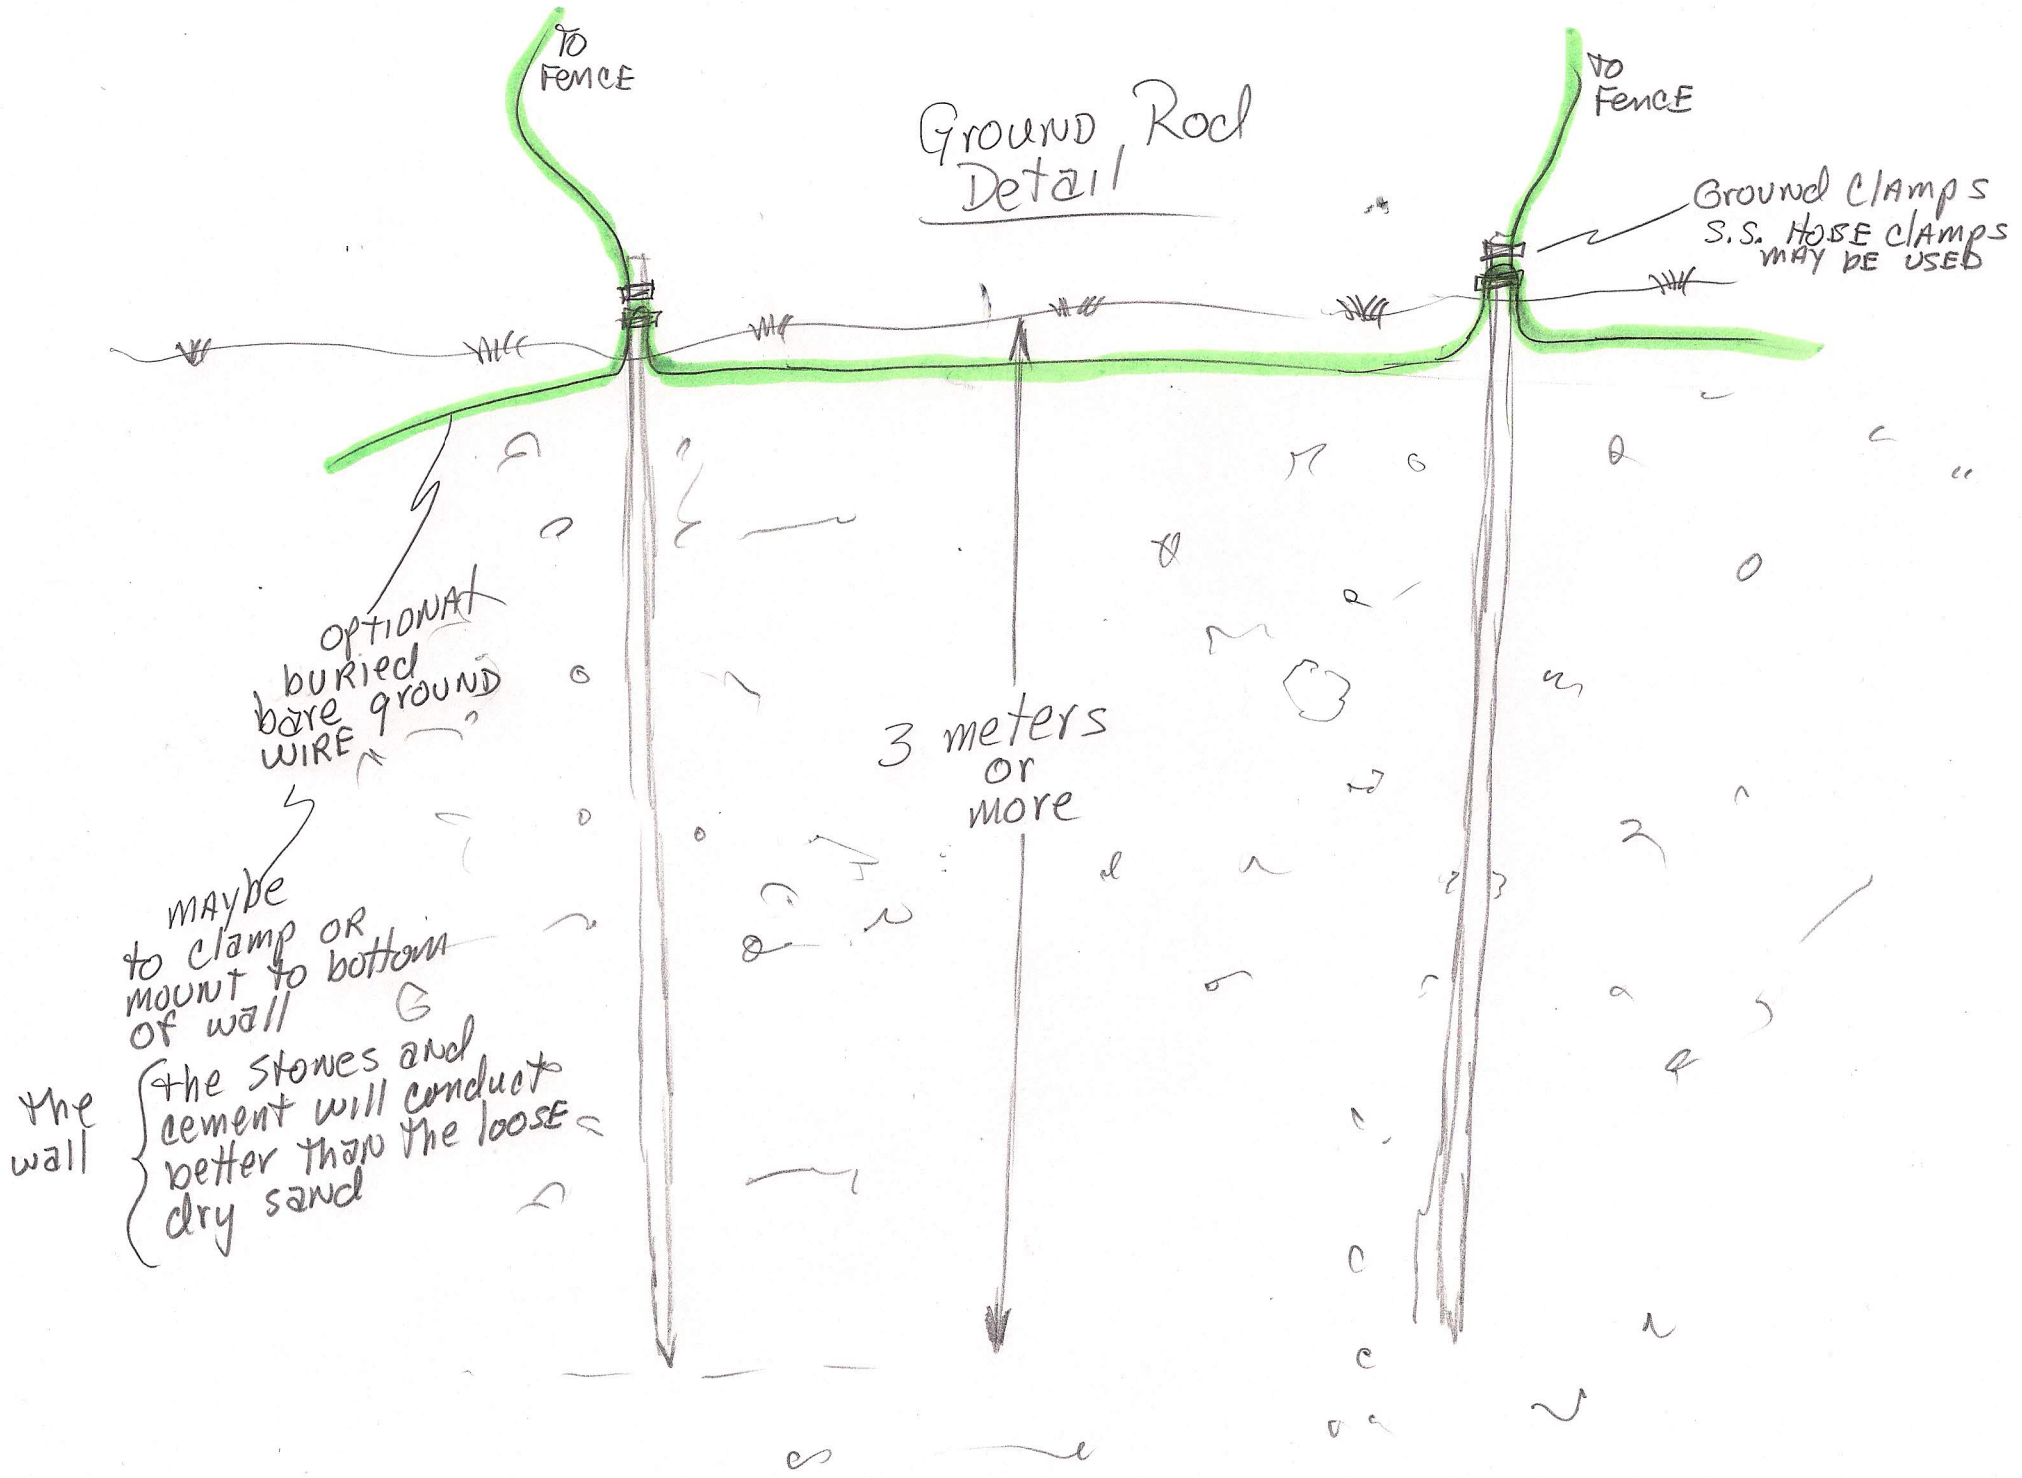 To
Fence
Ground Rod
Detail
To
Fence
Ground Clamps
S.S. HOSE Clamps
MAY BE USED
OPTIONAL
buried
bare ground
WIRE
3 meters
or
more
MAYbe
to clamp OR
MOUNT to bottom
of wall
the
wall
the stones and
cement will conduct
better than the loose
dry sand